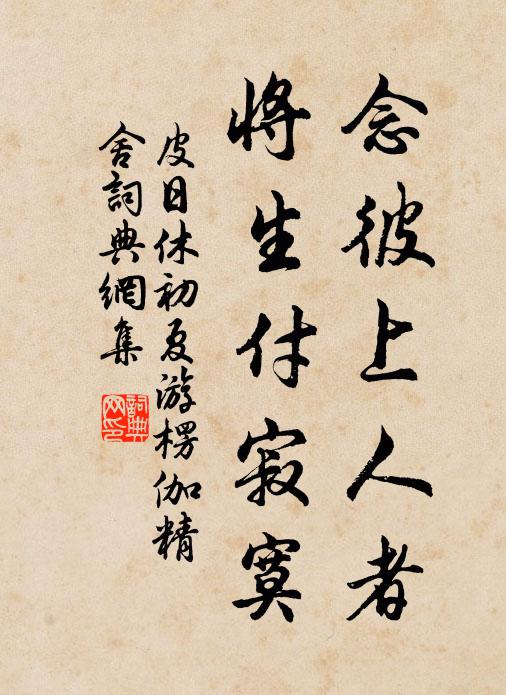 念彼上人者
將生付寂寞
皮日休初夏游楞伽精
舍詞典網集
詞典
网印